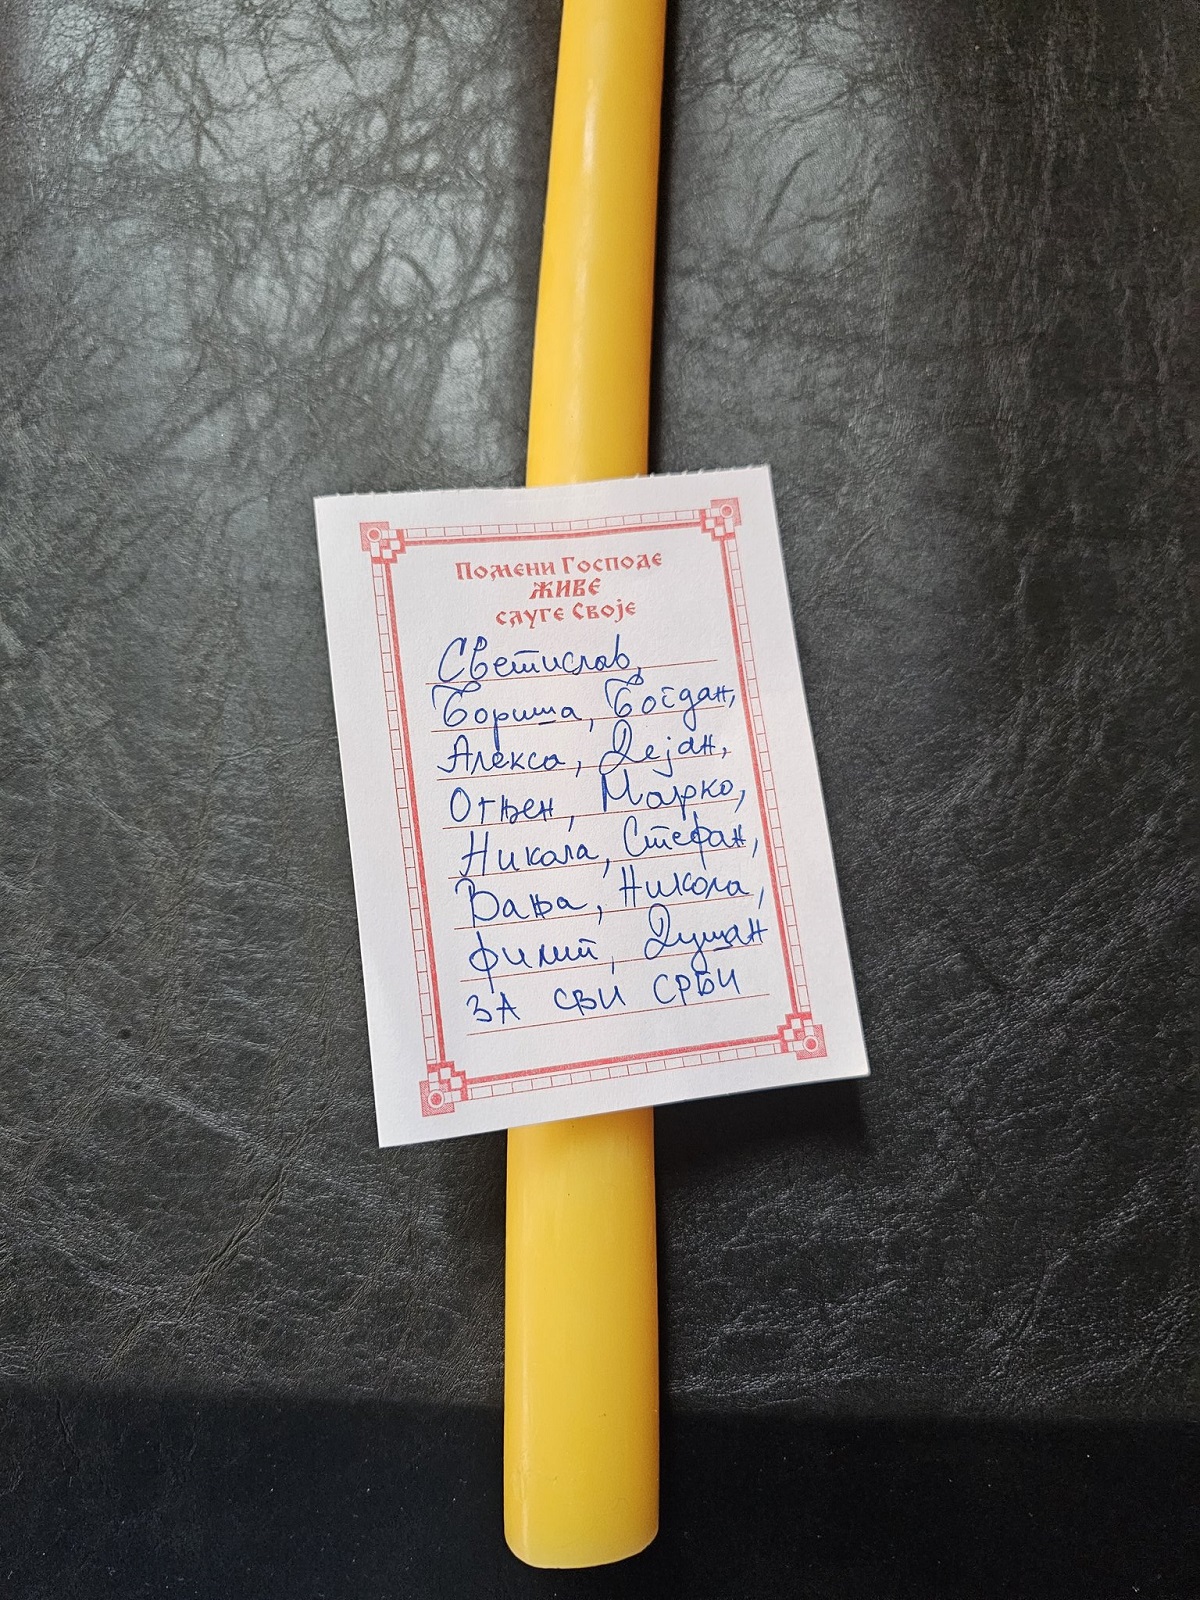 Помени Господе
живе
слуге Своје
Светислав,
Бориша, Богдан,
Алекса, Дејан,
Огњен, Марко,
Никола, Стефан,
Вања, Никола,
Филип, Душан
ЗА СВИ СРБИ